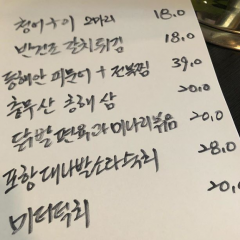 청어구이 2마리 18.0
반건조 갈치튀김 18.0
동해안 피문어 + 전복찜 39.0
충무산 호래 삼 20.0
닭발편육과 미나리볶음 20.0
포항 대나발소라숙회 28.0
미더덕회 20.0